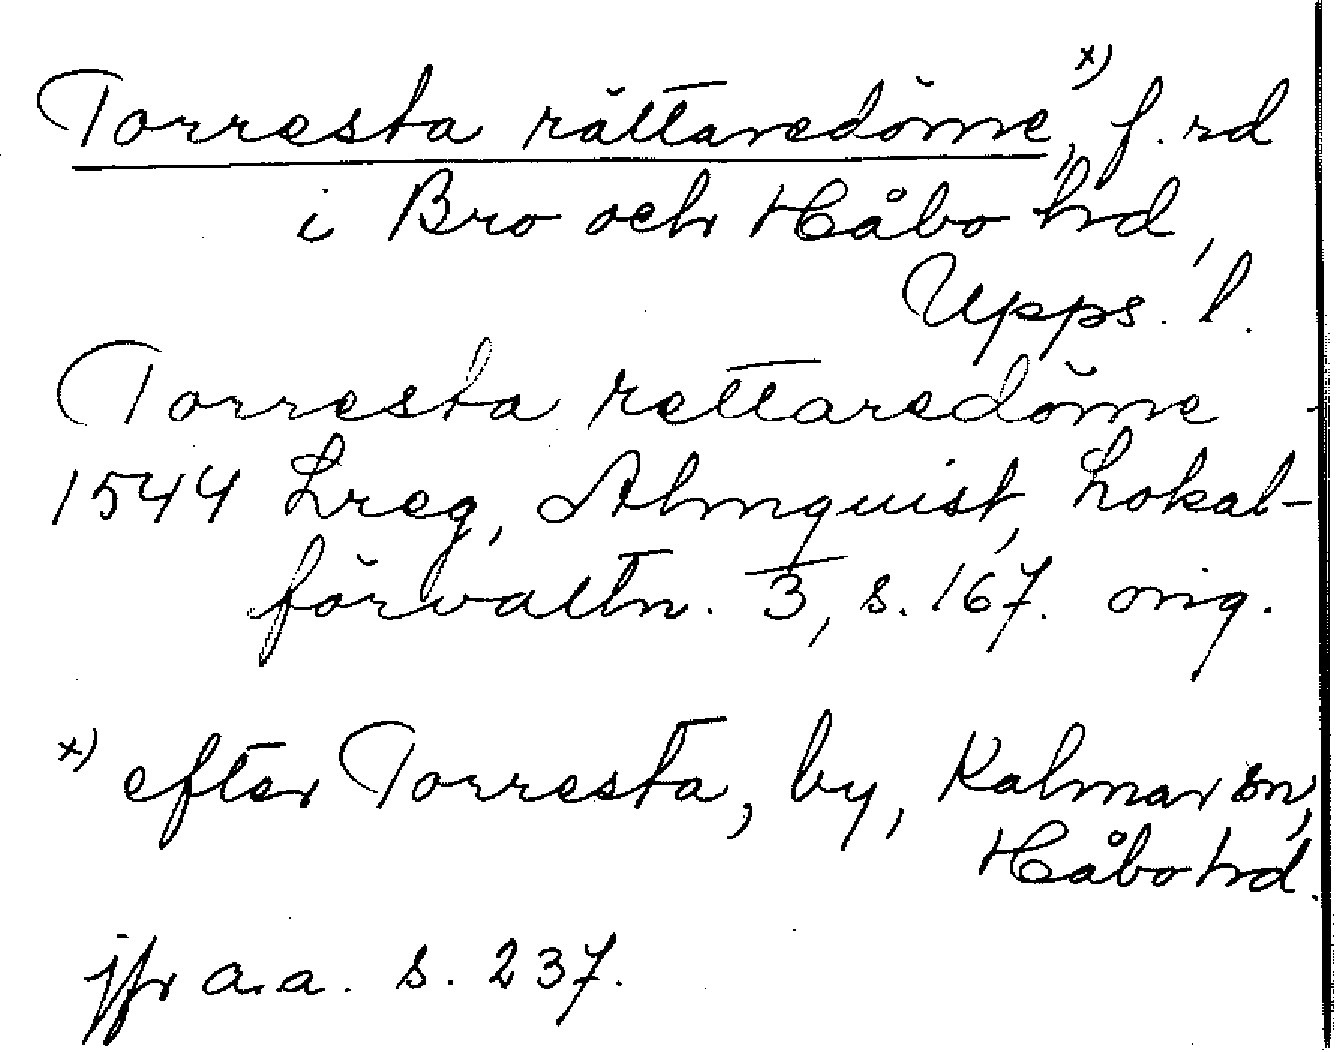 Torresta rättaredöme,ˣ⁾ f. rd
i Bro och Håbo hd,
Upps. l.
Torresta rettaredöme
1544 Lreg, Almquist, Lokal-
förvaltn. 3, s. 167. orig.
x) efter Torresta, by, Kalmar sn,
Håbo hd.
jfr a.a. s. 237.